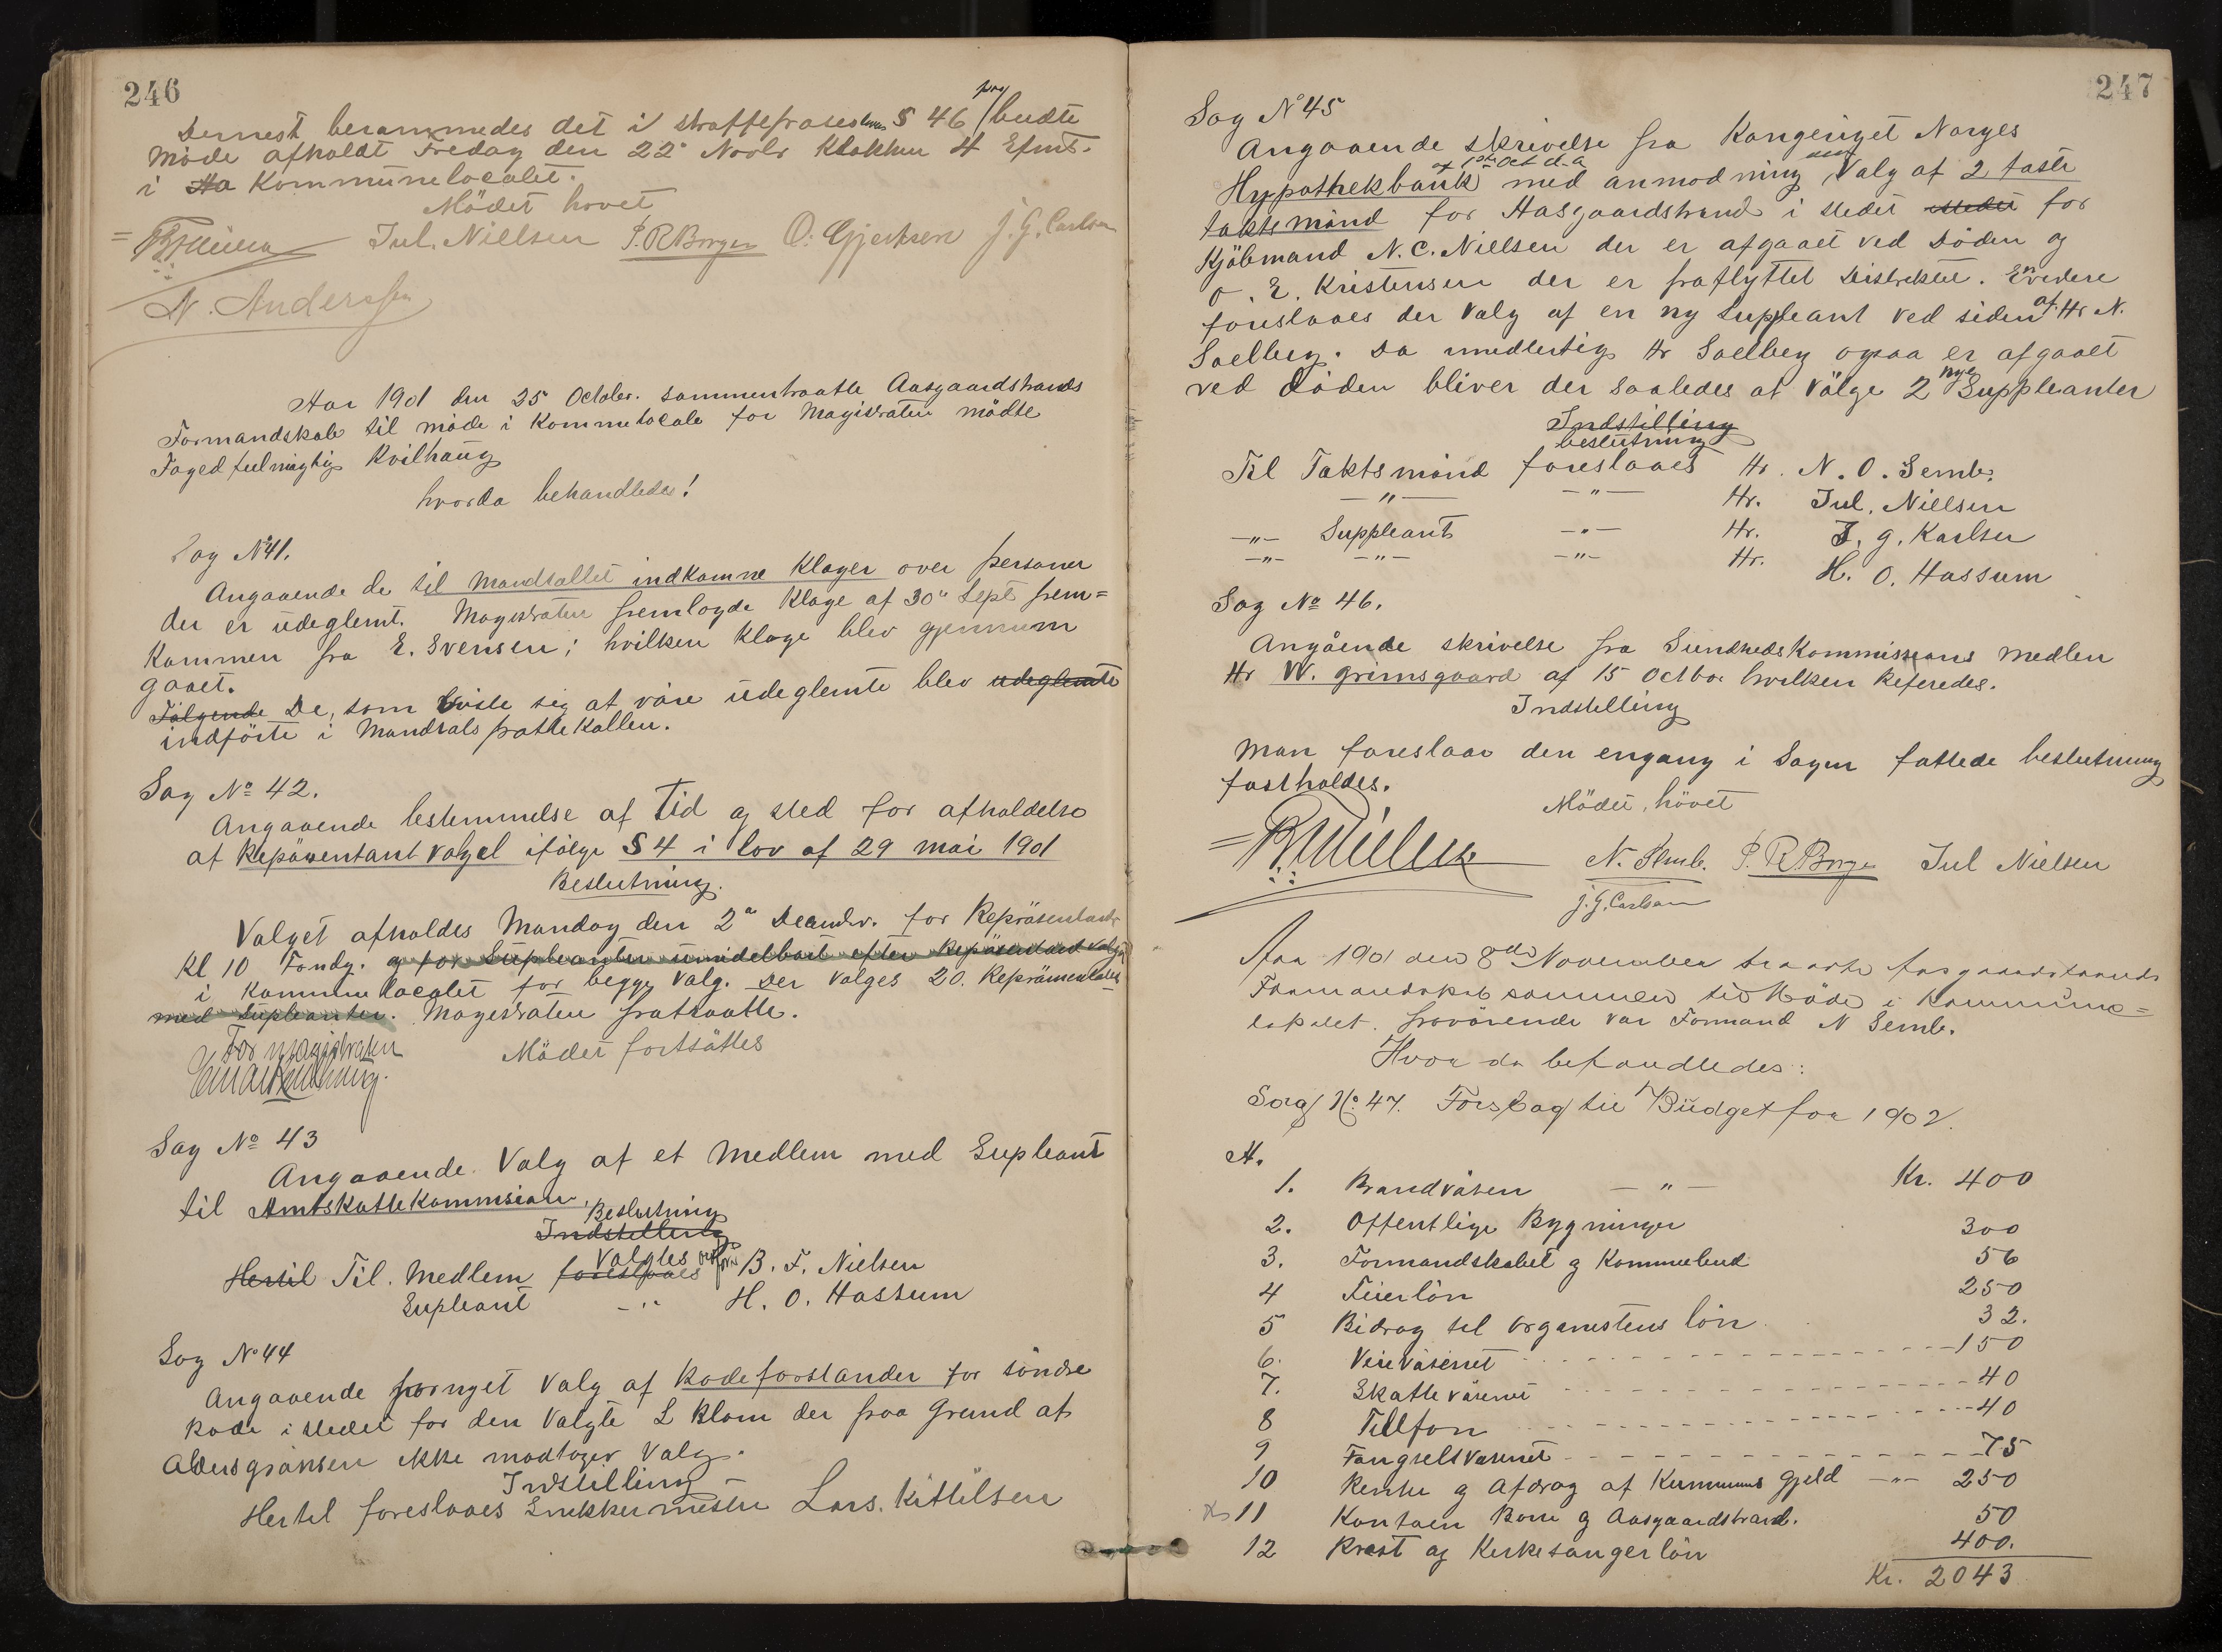 246
Dernest berammedes det i straffeproseslovens § 46 paabudte
Møde afholdt Fredag den 22' Novbr Klokken 4 Efmt.
i Ha Kommunelocalet.
Mödet hævet
Jul. Nielsen P. R Borgen O. Gjertsen J. G. Carlsen
N. Anderssen
Aar 1901 den 25 October. sammentraatte Aasgaardstrands
Formandskab til møde i Kommelocale for Magistraten mødte
Fogedfulmægtig Kvilhaug
hvorda behandledes!
Sag No 41.
Angaaende de til Mandtallet indkomne Klager over personer
der er udeglemt. Magistraten fremlagde Klage af 30" Sept frem=
kommen fra E. Svensen; hvilken Klage blev gjennem
gaaet.
Følgende De, som viste sig at være udeglemte blev udeglemte
indførte i Mandtals protte Kollen.
Sag No 42.
Angaaende bestemmelse af tid og sted for afholdelse
af Repäsentant valgel ifølge § 4 i lov af 29 mai 1901
Beslutning.
Valget afholdes Mandag den 2" Decembr. for Repräsentanter
Kl 10 Formdg. og for Supleanter umidelbart efter Repäsentant valget
i Kommunelocalet for begge Valg. Der vælges 20. Repræsentanter
med Supleanter. Magistraten fratraatte.
For magistraten
Mödet fortsättes
Sag No 43
Angaaende Valg af et Medlem med Supleant
til Amtskattekommision.
Beslutning
Indstelling
Hertil Til Medlem Valgtes foreslaaes B. F. Nielsen
Supleant -"- H. O. Hassum
Sag No 44
Angaaende fornyet Valg af Rodeforstander for söndre
Rode i stedet for den Valgte L Blom der paa Grund af
Aldersgränsen ikke modtager Valg.
Indstilling
Hertil foreslaaes Snekkermester Lars. Kittilsen
247
Sag No 45
Angaaende skrivelse fra Kongeriget Norges
Hypothekbank af 1ste Oct d.a med anmodning om Valg af 2 faste
takstmänd for Aasgaardstrand i stedet istedet for
Kjöbmand N. C. Nielsen der er afgaaet ved Döden og
O. E. Kristensen der er fraflyttet Distriktet. Envidere
foreslaaes der Valg af en ny Suppleant ved siden af Hr N.
Soelberg. Da imidlertig Hr Soelberg ogsaa er afgaaet
ved döden bliver der saaledes at Välge 2 nye Suppleanter
Indstilling
beslutning
Til Takstmänd foreslaaes Hr. N. O. Semb.
-"- -"- Hr. Jul. Nielsen
-"- Suppleant -"- Hr. J. G. Karlsen
-"- -"- -"- Hr. H. O. Hassum
Sag No 46.
Angående skrivelse fra SundhedsKommissions Medlem
Hr W. Grimsgaard af 15 Octbr. hvilken Referedes.
Indstelling
Man foreslaar den engang i Sagen fattede beslutning
fastholdes.
Mödet hävet
N. Semb. P. R. Borgen Jul Nielsen
J. G. Carlsen
Aar 1901 den 8de November traadte Aasgaardstrands
Formandskab sammen til Møde i Kommune=
lokalet. fraværende var Formand N Semb.
Hvor da behandledes:
Sag No 47. Forslag til Budget for 1902.
A.
1. Brandväsen -"- Kr. 400
2. Offentlige Bygninger 300
3. Formandskabet og Kommebud 56
4 Feierlön 250
5 Bidrag til organistens lön 32.
6. Veiväsenet 150
7. Skatteväsenet 40
8 Tellfon 40
9 Fängselsväsenet 75
10 Renter og Afdrag af Kommuns Gjeld -"- 250
11 Kontoen Borre og Aasgaardstrand. 50
12 Prest og Kirkesangerlön 400.
Kr. 2043